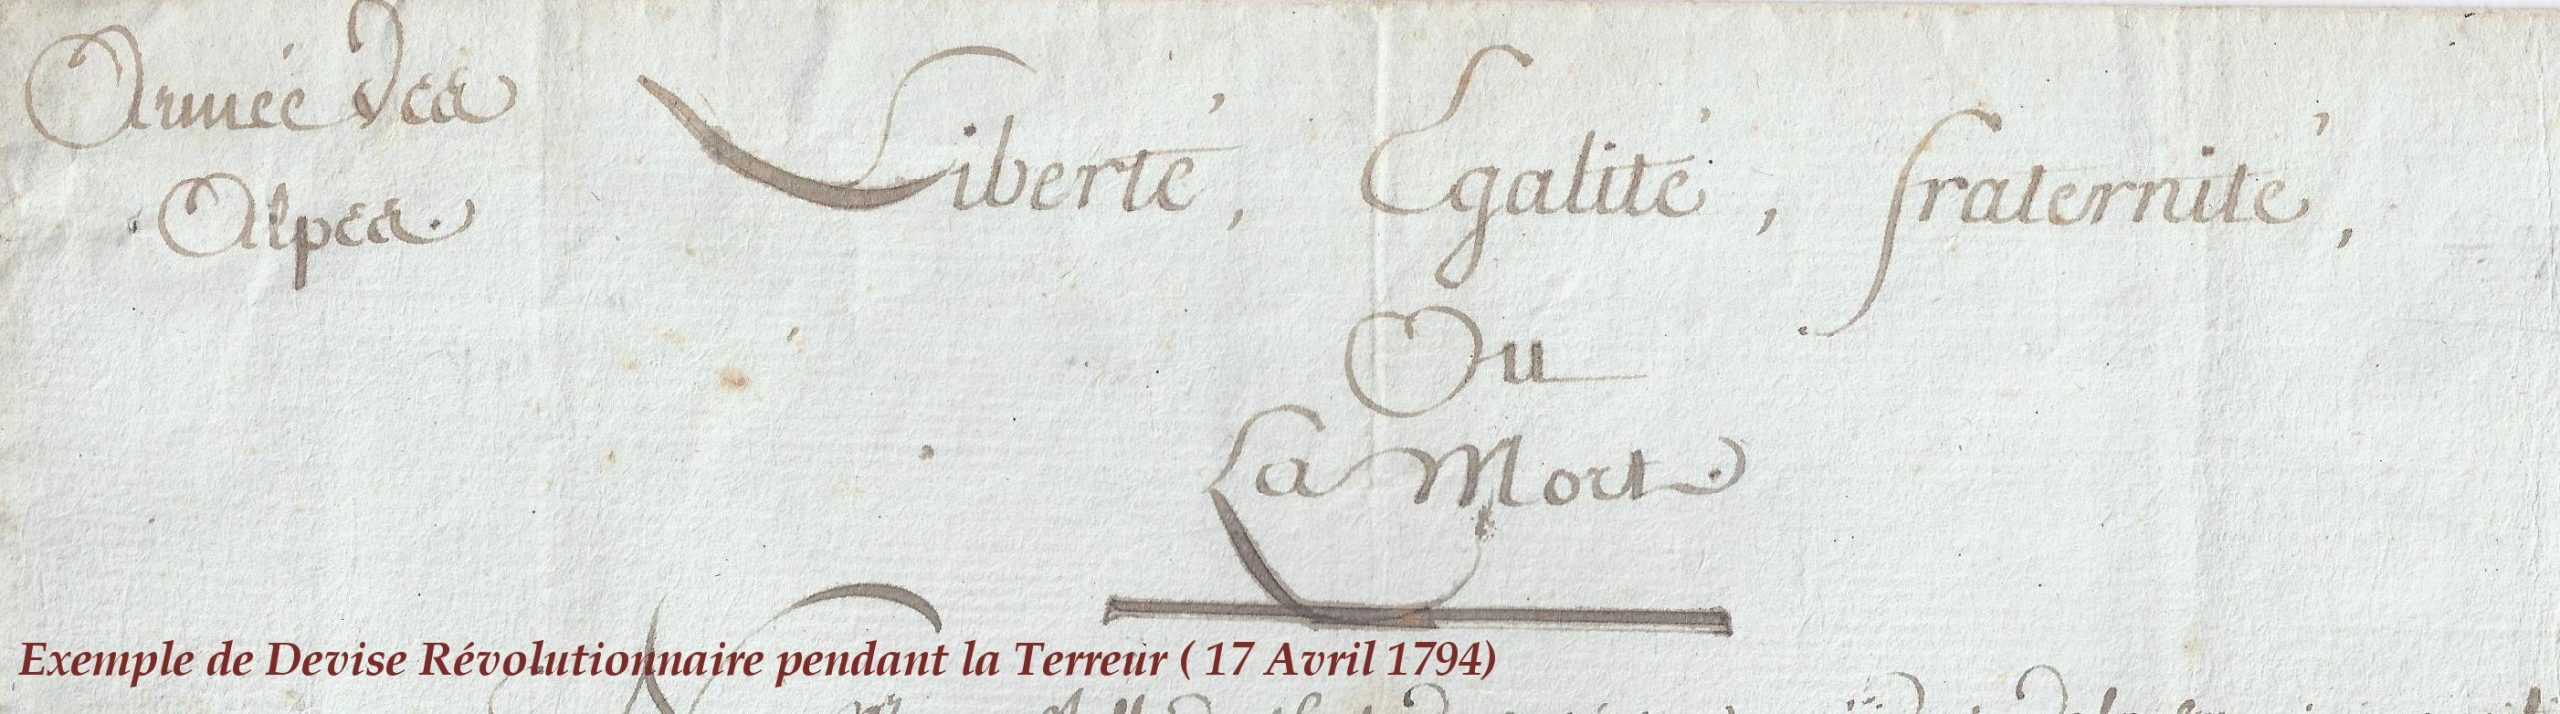 Armée des
Alpes.
Liberté, Egalité, fraternité,
Ou
La Mort.
Exemple de Devise Révolutionnaire pendant la Terreur ( 17 Avril 1794)